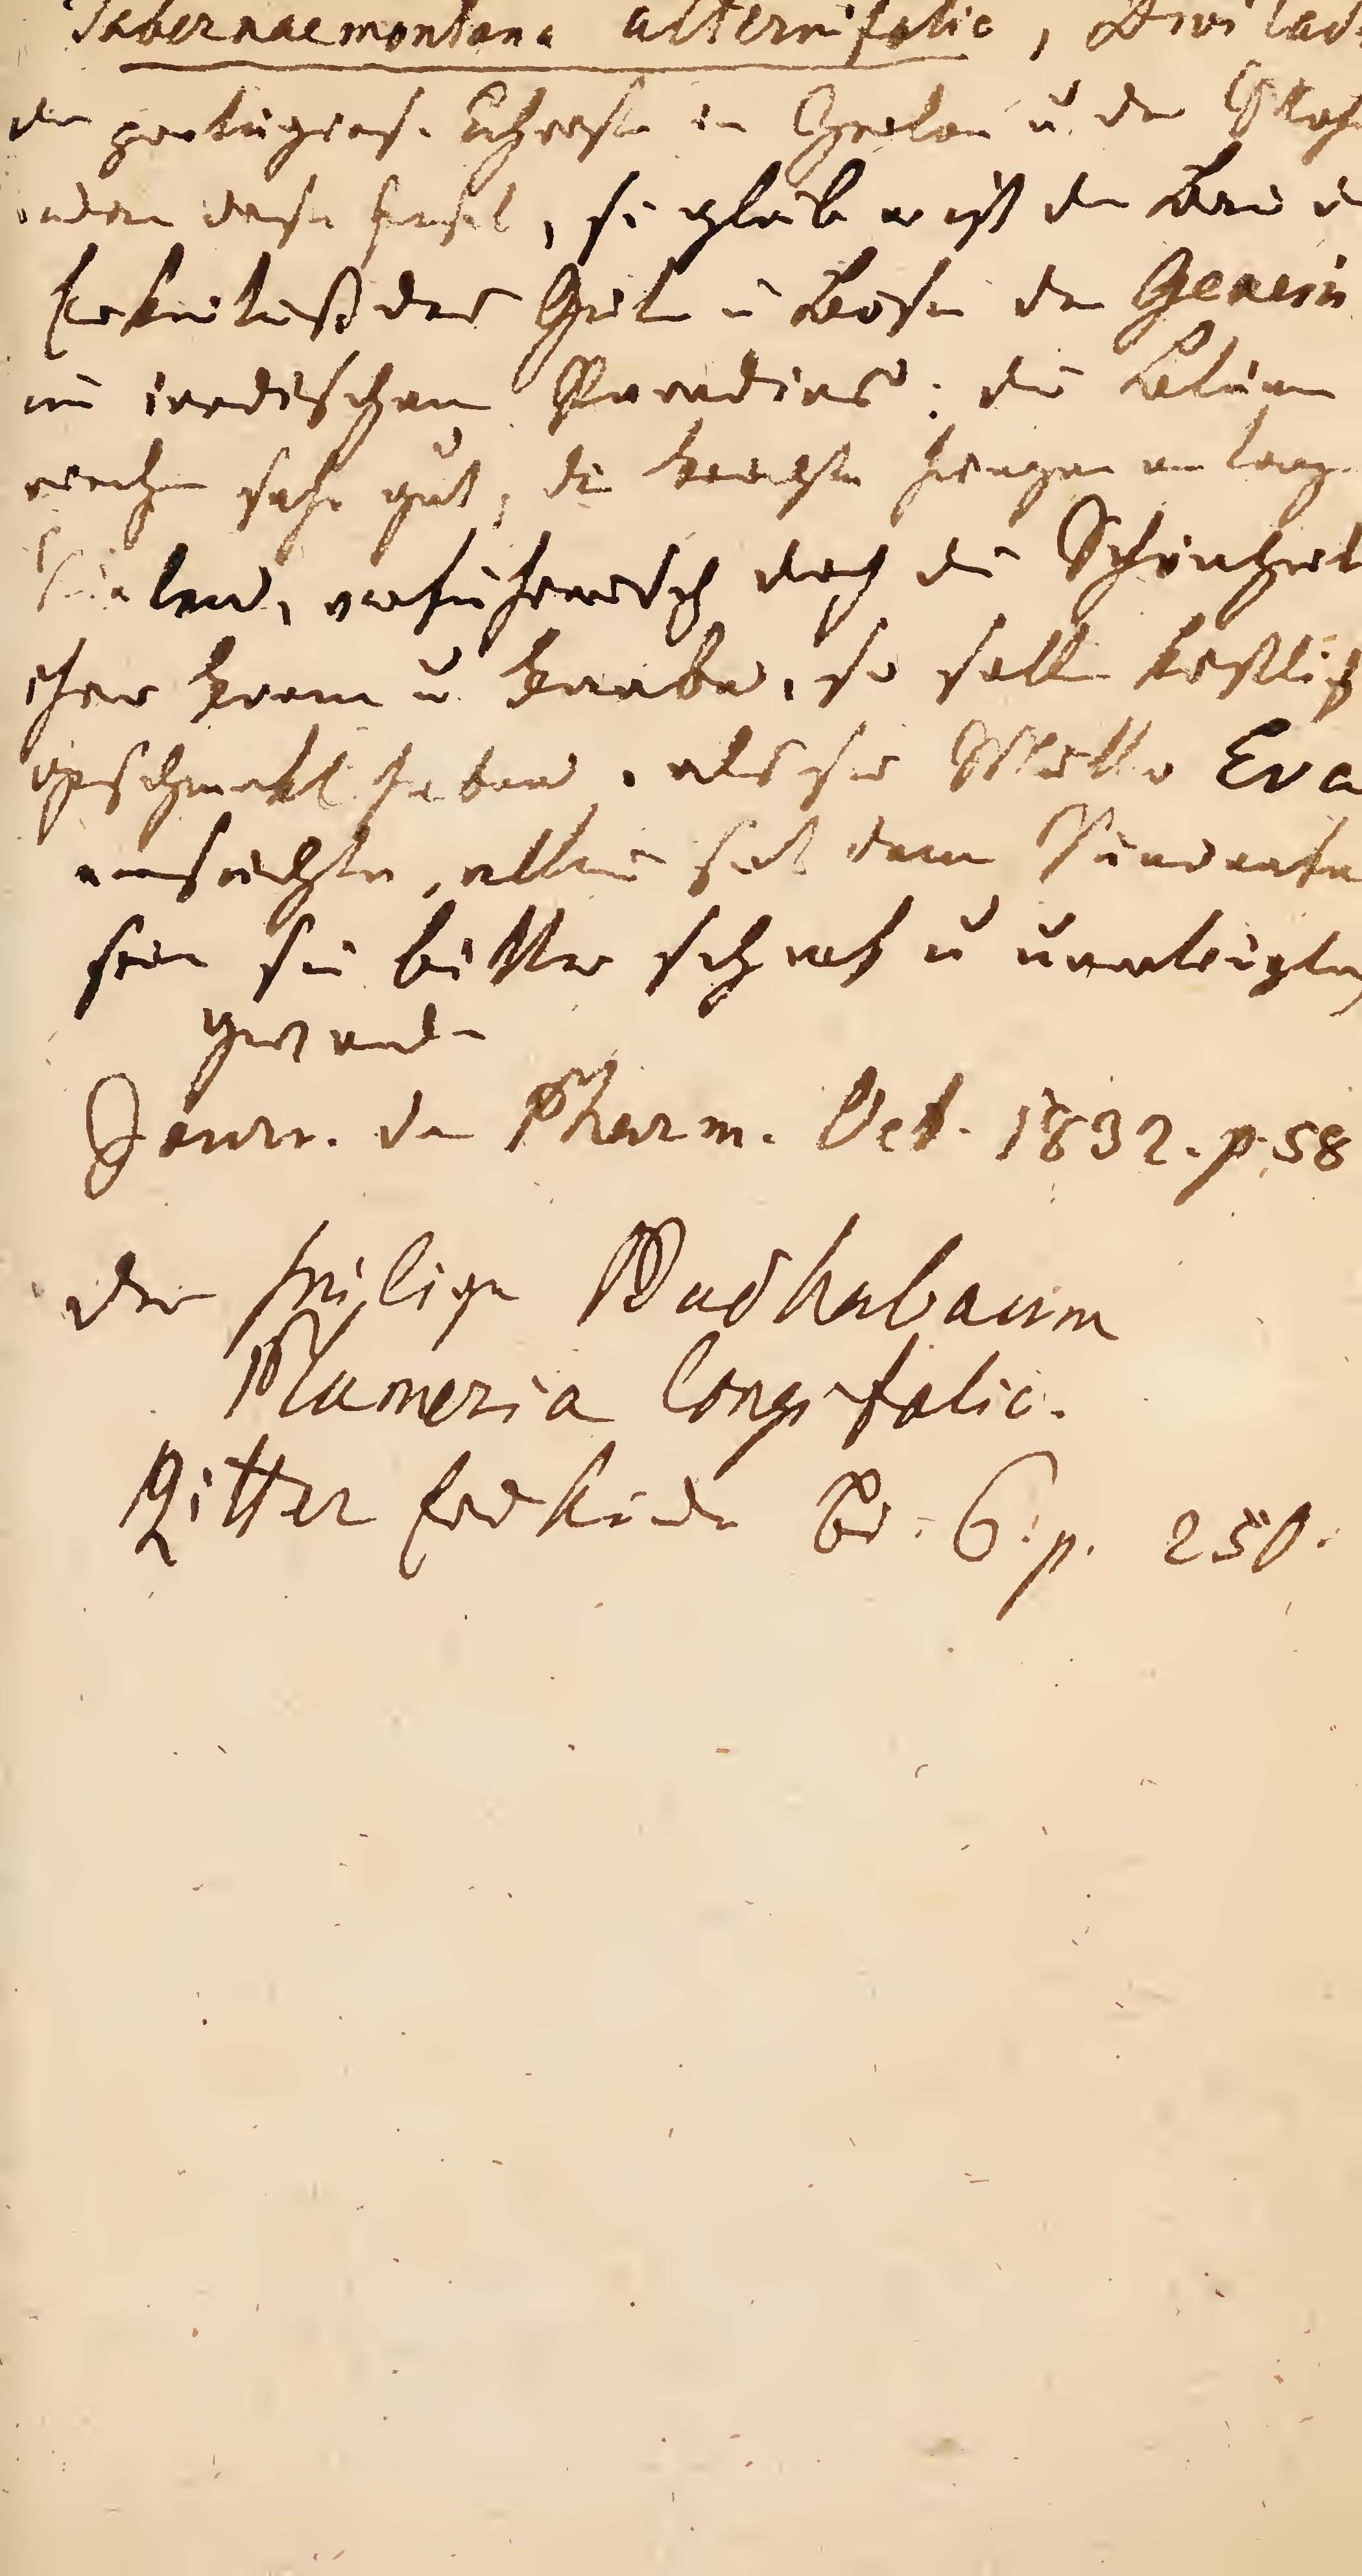 Tabernaemontana alternifolia, Divilad
der portugies. Christen in Ceylon u. der
dieser Insel, sie glaube es ist der Baum
Erkentniß des Guten u Bösen der Genesis
im irdischen Paradies: die Blumen
riechen sehr gut, die Früchte hängen an lang
verführerisch durch die Schönheit
ihrer Form u. Farbe, sie sollen köstlich
geschmekt haben, als sie Mutter Eva
versuchte, allein seit dem Sündenfa
sein sie bitter scharf u
geworden
Journ. de Pharm. Oct. 1832. p. 58
Der heilige Budhabaum
Plumeria longifolia.
Ritter Erdkunde Bd. 6. p. 250.